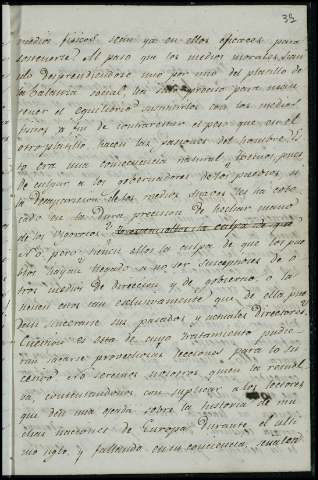 35
medios fisicos sean ya en ellos eficaces para
sostenerse? Al paso que los medios morales se an
ido desprendiendo uno por uno del platillo de
la balanza social, les es preciso para man
tener el equilibrio sustituirlos con los medios
fisicos a fin de contrarestar el peso que en el
otro platillo hacen las pasiones del hombre. Es
to era una consecuencia natural y hemos pues
de culpar a los gobernadores de los pueblos si
la desaparicion de los medios suaves les ha colo
cado en la dura precision de hechar mano
de los vigorosos?
No, pero tienen ellos la culpa de que los pue
blos hayan llegado a no ser susceptibles de o
tros medios de direccion y de gobierno o la
tienen estos tan exclusivamente que de ella pue
dan sincerarse sus pasados y actuales directores?
Cuestion es esta de cuyo tratamiento pudie
ran sacarse provechosas lecciones para lo su
cesivo. No seremos nosotros quien la resuel
va, contentandonos con suplicar a los lectores
que den una ojeada sobre la historia de mu
chas naciones de Europa durante el ulti
mo siglo, y fallando en su conciencia,